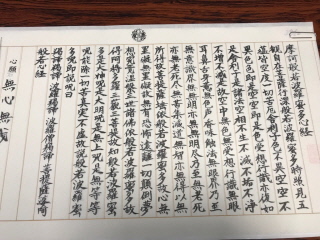 摩訶般若波羅蜜多心経
観自在菩薩行深般若波羅蜜多時照見五
蘊皆空度一切苦厄舎利子色不異空空不
異色色即是空空即是色受想行識亦復如
是舎利子是諸法空相不生不滅不垢不浄
不増不減是故空中無色無受想行識無眼
耳鼻舌身意無色声香味触法無眼界乃至
無意識界無無明亦無無明尽乃至無老死
亦無老死尽無苦集滅道無智亦無得以無
所得故菩提薩埵依般若波羅蜜多故心無
罣礙無罣礙故無有恐怖遠離一切顛倒夢
想究竟涅槃三世諸仏依般若波羅蜜多故
得阿耨多羅三藐三菩提故知般若波羅蜜
多是大神呪是大明呪是無上呪是無等等
呪能除一切苦真実不虚故説般若波羅蜜
多呪即説呪曰
羯諦羯諦 波羅羯諦 波羅僧羯諦 菩提薩婆訶
般若心経
心願 無心無我